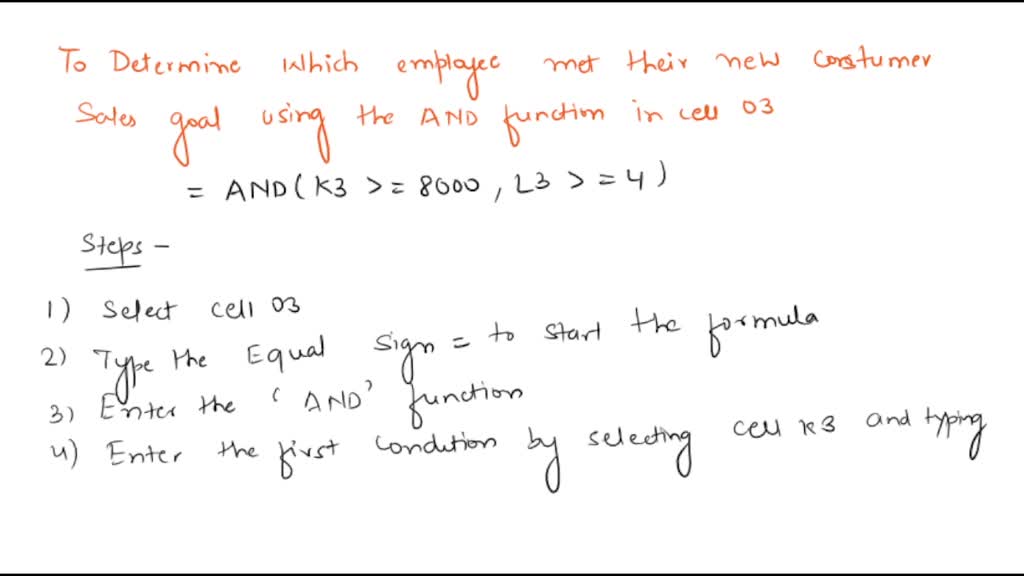 To Determine Which employee met their new Constumer
Sales goal using the AND function in cell O3
= AND(K3 >= 8000, L3 >= 4)
Steps -
1) Select cell O3
2) Type the Equal Sign = to start the formula
3) Enter the 'AND' function
4) Enter the first condition by selecting cell K3 and typing